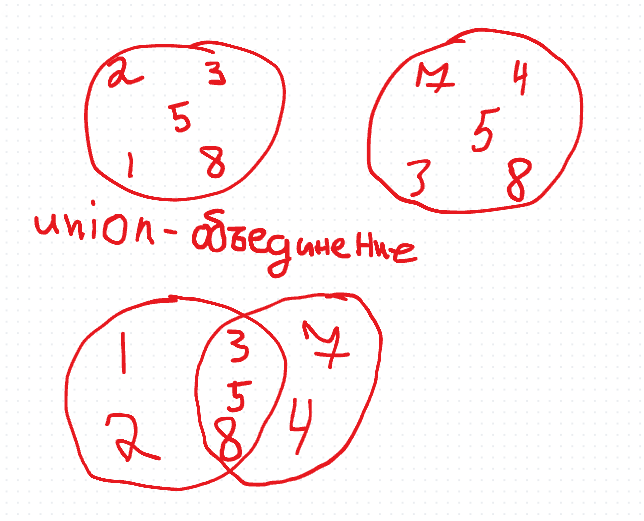 2 3
5
1 8
7 4
5
3 8
union - объединение
1 3 7
5
2 8 4